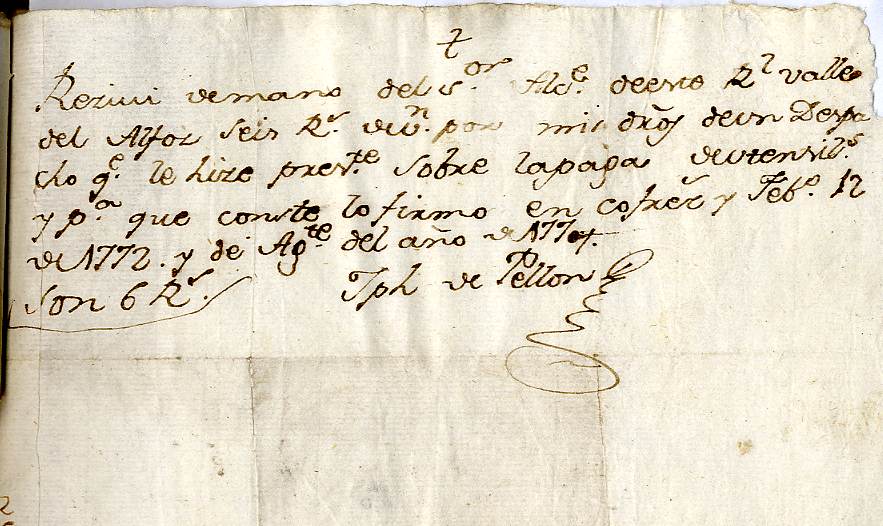 †
Reziui de mano del s.or Alc.e de este R.l valle
del Alfoz seis R.s de v.n por mis dr̃os de un Despa
cho q.e le hize pres.te sobre la paga de utensil.s
y p.a que conste lo firmo en cofre y Feb.o 12
de 1772. y de Ag.te del año de 177
Son 6 R.s Jph de Pellon